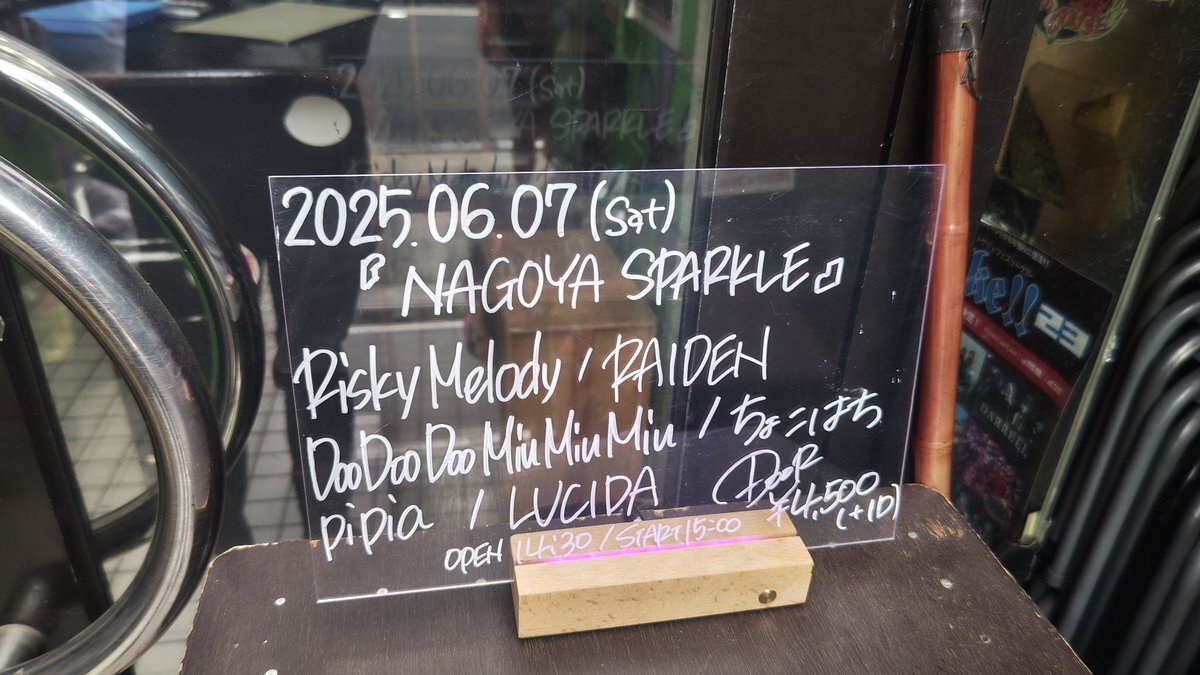 2025.06.07 (Sat)
『NAGOYA SPARKLE』
Risky Melody / RAIDEN
DooDooDoo MiuMiuMiu / ちょこはち
pipia / LUCIDA
DOOR ¥4,500 (+1D)
OPEN 14:30 / START 15:00
ke!! 23